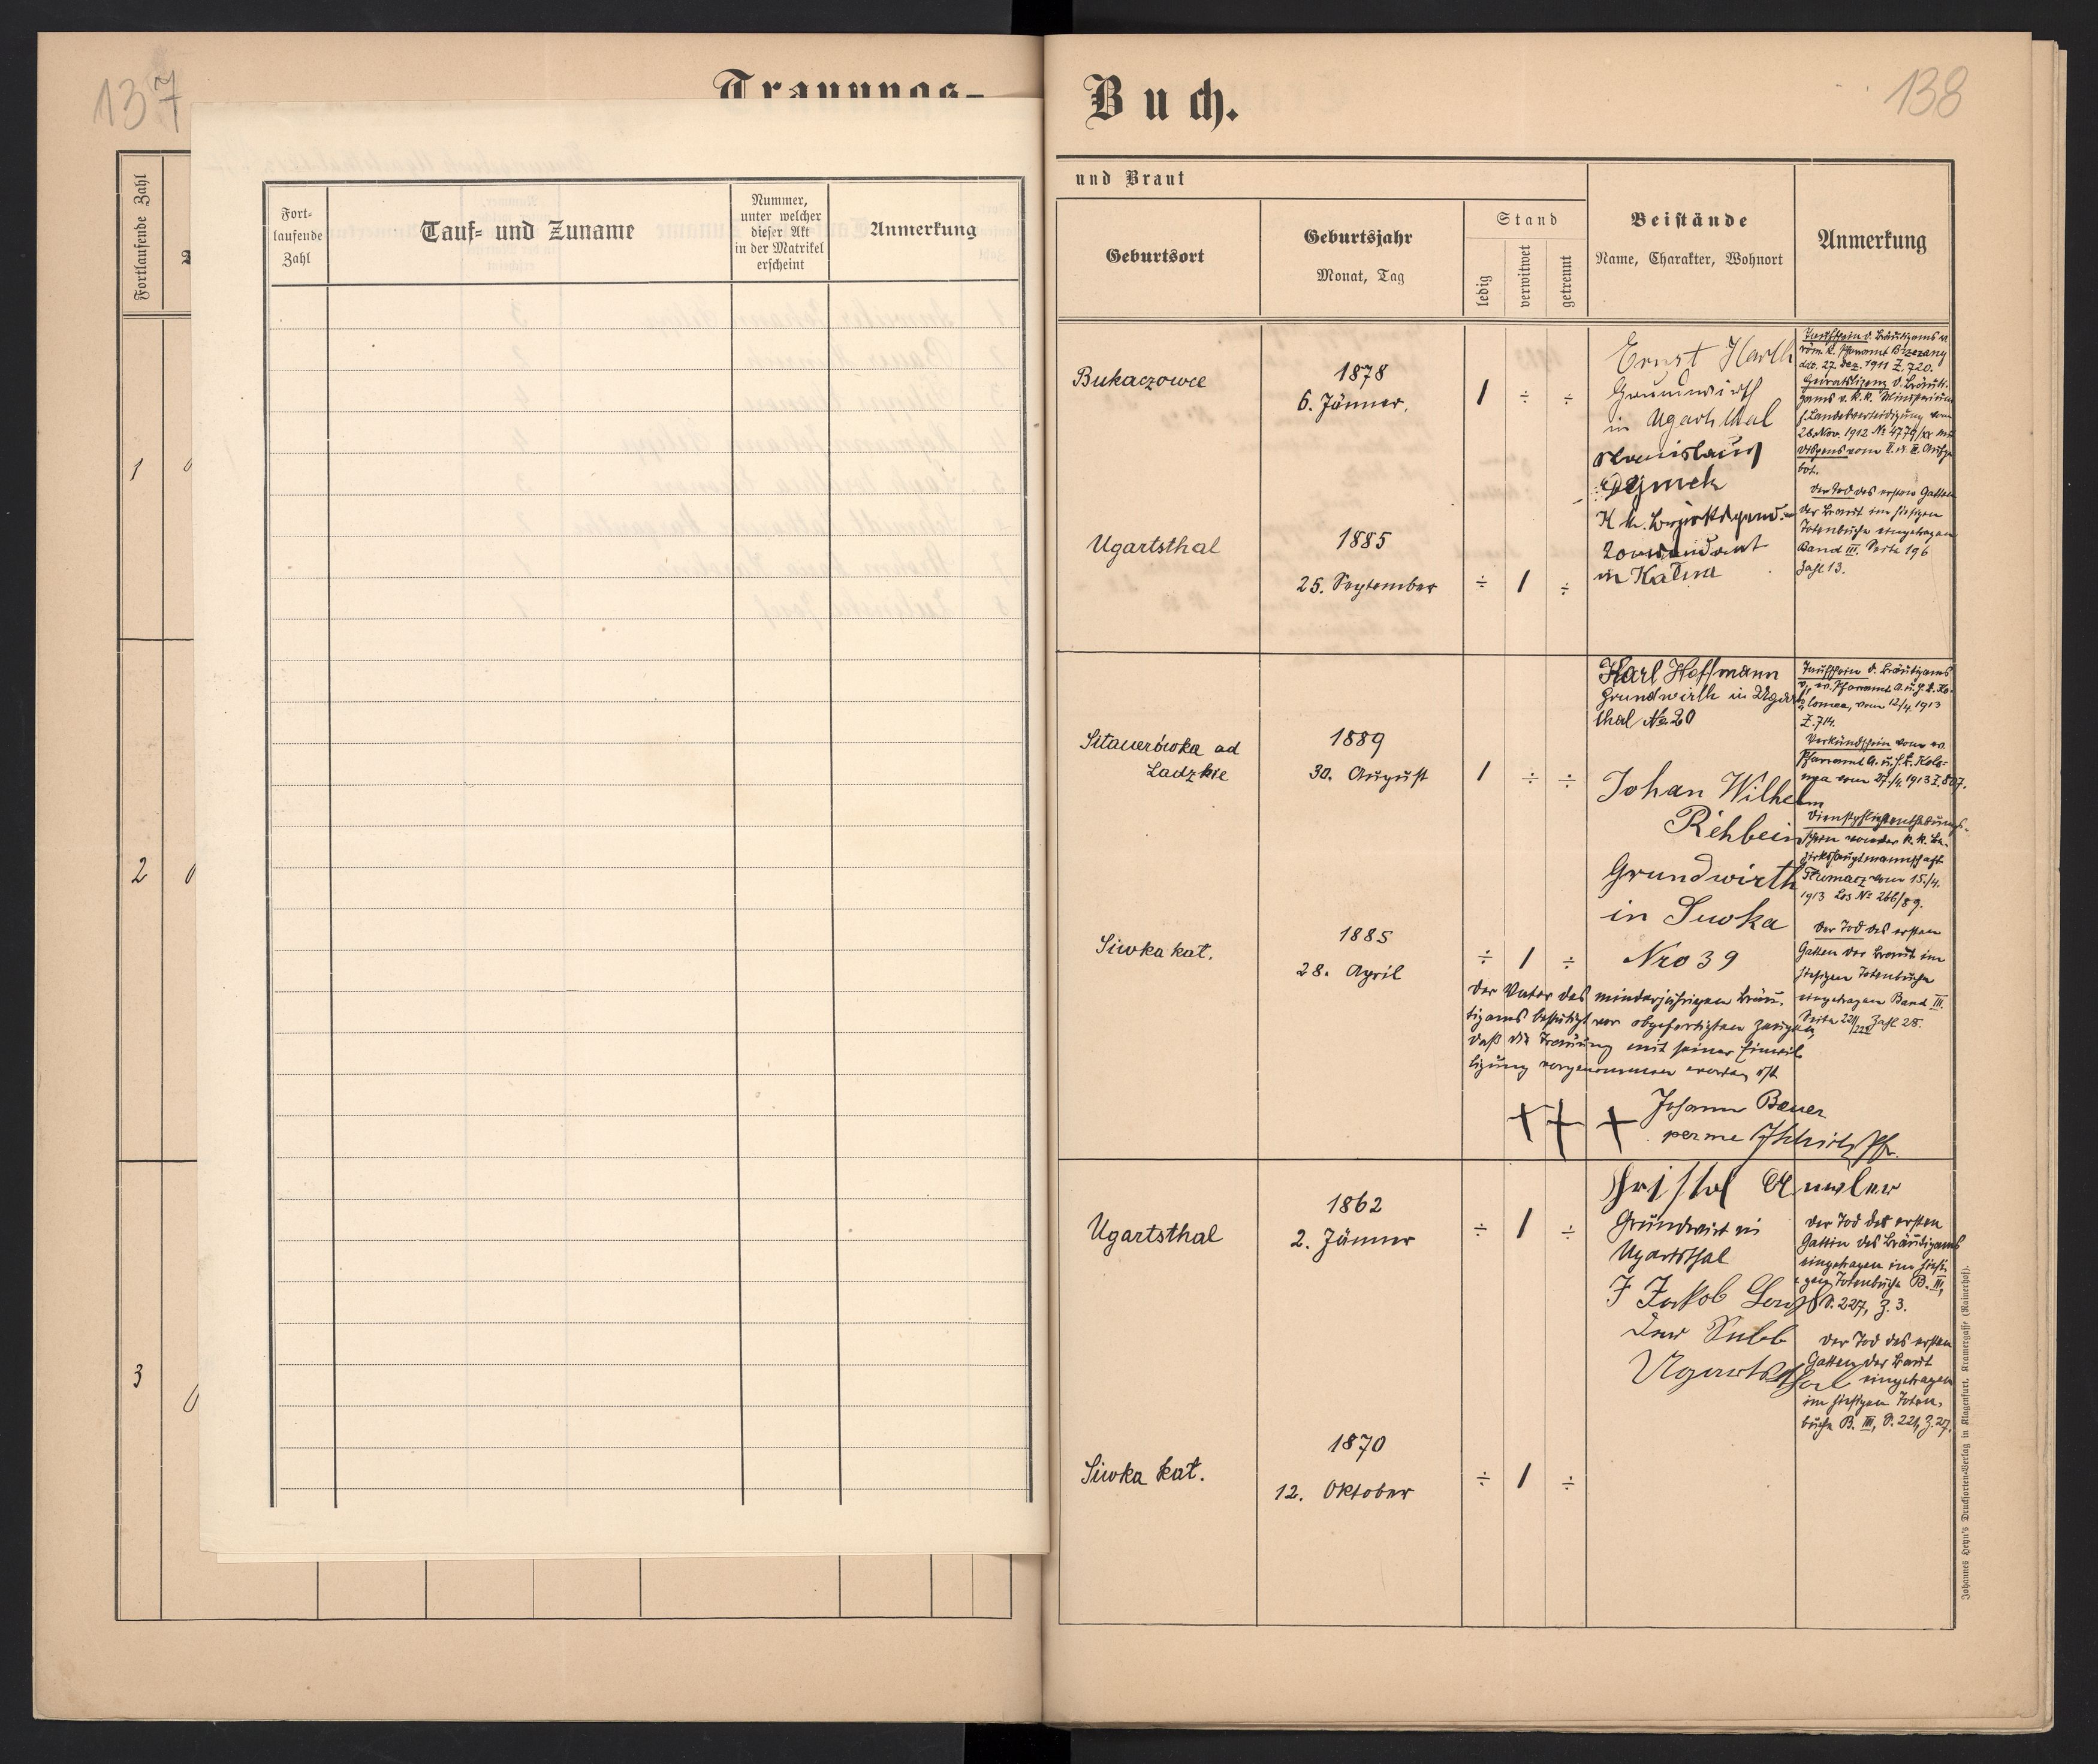 137
Trauungs-
Fortlaufende Zahl
1
2
3
Fort-
laufende
Zahl
Tauf- und Zuname
Nummer,
unter welcher
dieser Akt
in der Matrikel
erscheint
Anmerkung
Buch.
138
und Braut
Geburtsort
Geburtsjahr
Monat, Tag
Stand
ledig
verwitwet
getrennt
Beistände
Name, Charakter, Wohnort
Anmerkung
Bukaczowce
1878
6. Jänner.
1 ÷ ÷
Ugartsthal
1885
25. September
÷ 1 ÷
Ernst Harlh
Grundwirth
in Ugartsthal
in Kałusz
Taufschein d. Bräutigams v.
röm. k. Pfarramt Brzezany
ddo. 27. Dez. 1911 Z. 720.
Heiratslizenz d. Bräuti-
gams v. k. k. Ministerium
f. Landesverteidigung vom
26. Nov. 1912 № 4779/XX mit
Dispens vom II. u. III. Aufge
bot.
Der Tod des ersten Gatten
der Braut im hiesigen
Totenbuche eingetragen
Band III. Seite 196
Zahl 13.
Sitauerówka ad
Ladzkie
1889
30. August
1 ÷ ÷
Siwka kat.
1885
28. April
÷ 1 ÷
Karl Hoffmann
Grundwirth in Ugarts
thal № 20
Johan Wilhelm
Rehbein
Grundwirth
in Siwka
Nro 39
Taufschein d. Bräutigams
v. ev. Pfarramt A. u. H. B. Ko-
lomea, vom 12/4. 1913
Z. 714.
Verkündschein vom ev.
Pfarramt A. u. H. B. Kolo-
mea vom 27./4. 1913 Z. 807.
Dienstpflichtenthebungs-
schein von der k. k. Be-
zirkshauptmannschaft
Tłumacz vom 15./4.
1913 Los № 266/89.
Der Tod des ersten
Gatten der Braut im
hiesigen Totenbuche
eingetragen Band III.
Seite 221/222 Zahl 28.
Der Vater des minderjährigen Bräu-
tigams bestätigt vor obgefertigten Zeugen,
daß die Trauung mit seiner Einwil
ligung vorgenommen worden ist
+ + + Johann Bauer
per me
Ugartsthal
1862
2. Jänner
÷ 1 ÷
Siwka kat.
1870
12. Oktober
÷ 1 ÷
Grundwirt in
Ugartsthal
Jakob
Ugartsthal
Der Tod des ersten
Gattin des Bräutigams
eingetragen im hiesi
gen Totenbuche B. III,
S. 227, Z. 3.
Der Tod des ersten
Gatten der Braut
eingetragen
im hiesigen Toten-
buche B. III, S. 221, Z. 27.
Johannes Heyn's Drucksorten-Verlag in Klagenfurt, Kramergasse (Rainerhof).